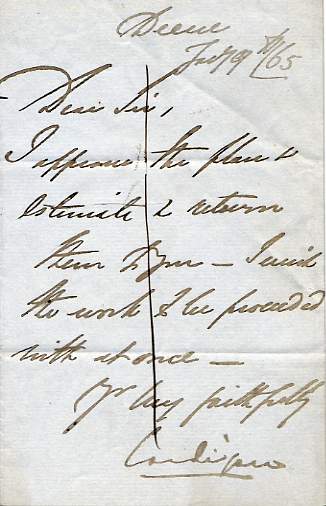 Deene
9th /65
Dear Sir,
I approve the plan &
Estimate & return
them to you — I wish
the work to be proceeded
with at once —
Yr very faithfully
Cardigan